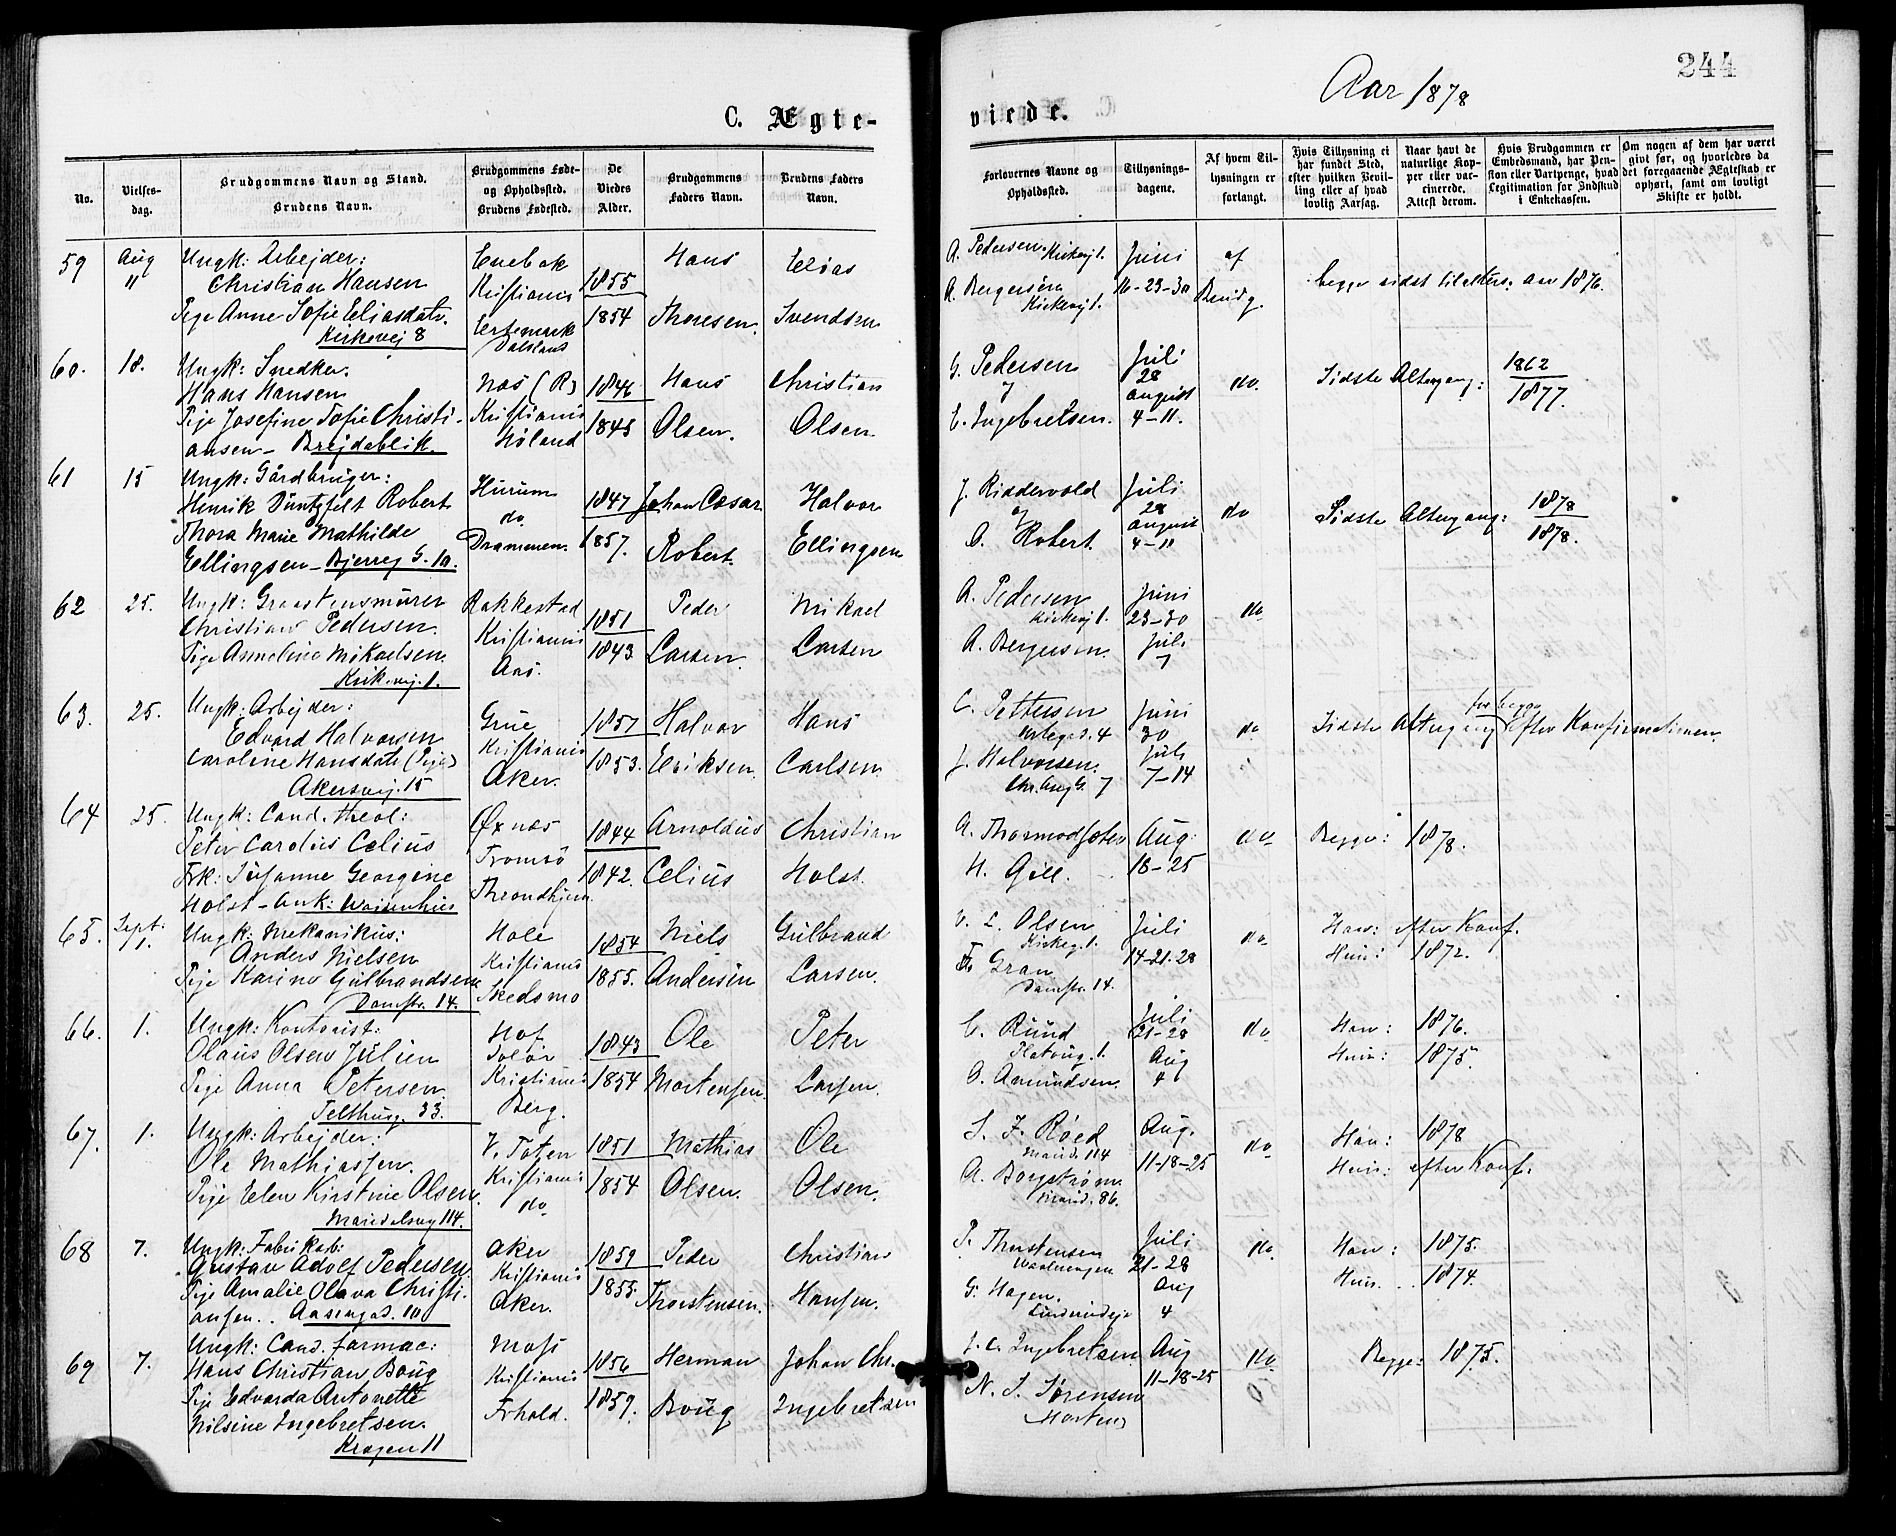 244
Aar 1878
C. Ægte-
viede.
No.
Vielses-
dag.
Brudgommens Navn og Stand.
Brudens Navn.
Brudgommens Føde-
og Opholdssted.
Brudens Fødested.
De
Viedes
Alder.
Brudgommens
Faders Navn.
Brudens Faders
Navn.
Forlovernes Navne og
Opholdssted.
Tillysnings-
dagene.
Af hvem Til-
lysningen er
forlangt.
Hvis Tillysning ei
har fundet Sted,
efter hvilken Bevil-
ling eller af hvad
lovlig Aarsag.
Naar havt de
naturlige Kop-
per eller vac-
cinerede.
Attest derom.
Hvis Brudgommen er
Embedsmand, har Pen-
sion eller Vartpenge, hvad
Legitimation for Indskud
i Enkekassen.
Om nogen af dem har været
givt før, og hvorledes da
det foregaaende Ægteskab er
ophørt, samt om lovligt
Skifte er holdt.
59 Aug 11 Ungk: Arbejder:
Christian Hansen
Pige Anne Sofie Eliasdatr.
Kirkevej 8
Enebak
Kristiania
Dalsland
1855
1854
Hans
Thoresen.
Elias
Svendsen
A. Pedersen. Kirkevej 1.
A. Bergersen
Kirkevej 1.
Juni
16-23-30
af
Brudg.
begge sidst tilalters: aar 1876.
60. 18. Ungk: Snedker.
Hans Hansen
Pige Josefine Sofie Christi-
ansen - Brejdablik.
Næs (R)
Kristiania
Høland
1846
1845
Hans
Olsen.
Christian
Olsen
G. Pedersen
og
E. Ingebretsen.
Juli
28
August
4-11.
do.
Sidste Altergang:
1862
1877.
61 15 Ungk: Gårdbruger:
Henrik Duntzfelt Robert
Thora Marie Mathilde
Ellingsen - Bjerreg G. 10.
Hurum
do.
Drammen.
1847
1857.
Johan Cæsar
Robert.
Halvor
Ellingsen
J. Riddervold
og
O. Robert.
Juli
28
August
4-11
do
Sidste Altergang:
1878
1878.
62 25. Ungk: Graastensmurer
Christian Pedersen.
Pige Annelina Mikaelsen.
Kirkevej. 1.
Rakkestad
Kristiania
Aas.
1851
1843
Peder
Larsen.
Mikael
Larsen
A. Pedersen
Kirkevej 1.
A. Bergersen.
Juni
23-30
Juli
7
do
63. 25. Ungk: Arbejder:
Edvard Halvorsen
Caroline Hansdatr (Pige)
Akersvej. 15
Grue
Kristiania
Aker.
1857
1853.
Halvor
Eriksen.
Hans
Carlsen.
C. Pettersen
J. Halvorsen.
Chr. Aug G. 7
Juni
30
Juli
7-14
do
Sidste Altergang for begge efter Konfirmationen.
64 25. Ungk: Cand. theol:
Peter Carolus Celius
Frk: Susanne Georgine
Holst - Ank: Waisenhus
Øxnæs
Tromsö
Throndhjem.
1844
1842.
Arnoldus
Celius
Christian
Holst.
A. Thormodsæter
H. Gill.
Aug:
18-25
do
Begge: 1878.
65. Sept: 1. Ungk: Mekanikus:
Anders Nielsen
Pige Karine Gulbrandsen
Damstr. 14.
Hole
Kristiania
Skedsmo
1854
1855.
Niels
Andersen
Gulbrand
Larsen.
L. Olsen
Kirkeg. 1.
Gran
Damstr. 14.
Juli
14-21-28
do
Han: efter Konf.
Hun: 1872.
66. 1. Ungk: Kontorist:
Olaus Olsen Julien
Pige Anna Petersen.
Telthusg. 33.
Hof
Solør
Kristiania
Berg.
1843
1854
Ole
Mortensen.
Peter
Larsen.
C. Ruud
O. Amundsen.
Juli
21-28
Aug
4
do
Han: 1876.
Hun: 1875.
67. 1. Ungk: Arbejder:
Ole Mathiassen.
Pige Elen Kirstine Olsen.
Maridalsvej 114.
V. Toten
Kristiania
do
1851
1854
Mathias
Olsen.
Ole
Olsen.
S. J. Røed
Marid. 114
A. Borgstrøm.
Marid. 86.
Aug.
11-18-25
do
Han: 1878
Hun: efter Konf:
68 7. Ungk: Fabrikarb:
Gustav Adolf Pedersen
Pige Amalie Olava Christi-
ansen. . Aasengad. 10
Aker
Kristiania
Aker.
1859
1855.
Peder
Thorstensen.
Christian
Hansen.
P. Thorstensen
G. Hagen.
Juli
21-28
Aug
4
do
Han: 1875.
Hun. . . 1874.
69 7. Ungk: Cand. farmac:
Hans Christian Boug
Pige Edvarda Antonette
Nilsine Ingebretsen.
Krogen 11
Moss
Kristiania
Frhald.
1856
1859.
Herman
Boug
Johan Chr.
Ingebretsen
J. C. Ingebretsen
N. S. Sørensen
Aug
11-18-25
do
Begge: 1875.